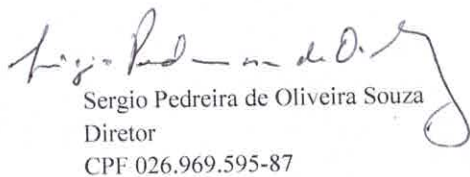 Sergio Pedreira de Oliveira Souza
Diretor
CPF 026.969.595-87